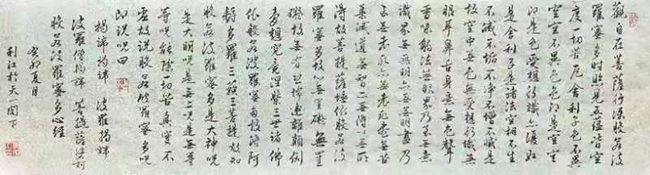 觀自在菩薩行深般若波
羅蜜多時照見五蘊皆空
度一切苦厄舍利子色不異
空空不異色色即是空空
即是色受想行識亦復如
是舍利子是諸法空相不生
不滅不垢不淨不增不減是
故空中無色無受想行識無
眼耳鼻舌身意無色聲
香味觸法無眼界乃至無意
識界無無明亦無無明盡乃
至無老死亦無老死盡無苦
集滅道無智亦無得以無所
得故菩提薩埵依般若波
羅蜜多故心無罣礙無罣
礙故無有恐怖遠離顛倒
夢想究竟涅槃三世諸佛
依般若波羅蜜多故得阿
耨多羅三藐三菩提故知
般若波羅蜜多是大神咒
是大明咒是無上咒是無等
等咒能除一切苦真實不
虛故說般若波羅蜜多咒
即說咒曰
揭諦揭諦 波羅揭諦
波羅僧揭諦 菩提薩婆訶
般若波羅蜜多心經
癸卯夏月
利江於天一閣下